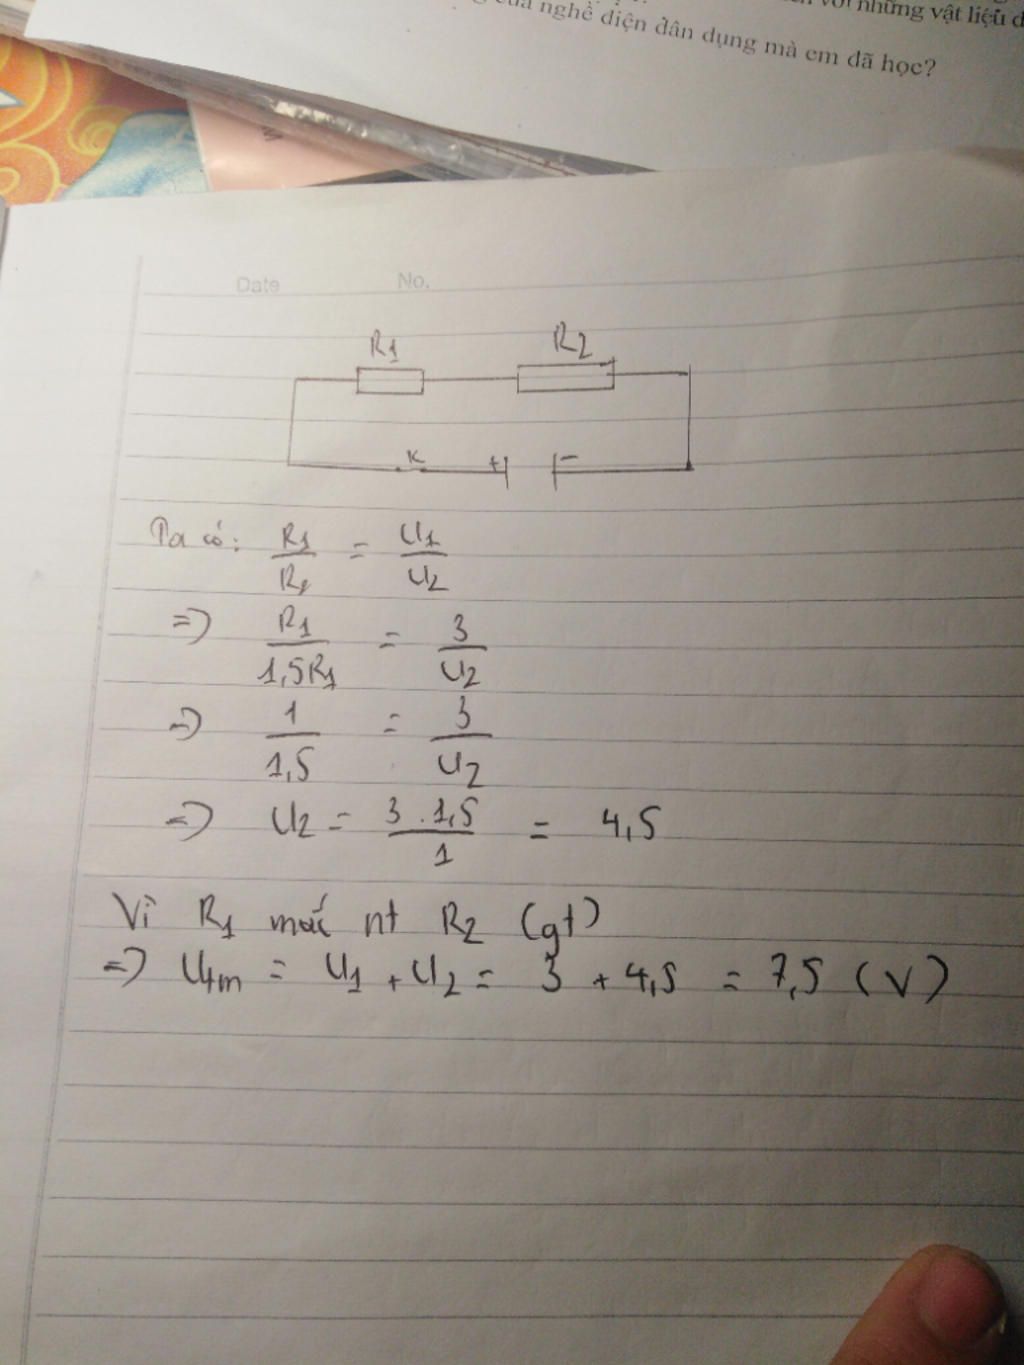 với những vật liệu
của nghề điện dân dụng mà em đã học?
Date No.
R1 R2
K + -
Ta có: R1/R2 = U1/U2
=> R1/1,5R1 = 3/U2
=> 1/1,5 = 3/U2
=> U2 = 3.1,5/1 = 4,5
Vì R1 mắc nt R2 (gt)
=> Utm = U1 + U2 = 3 + 4,5 = 7,5 (V)